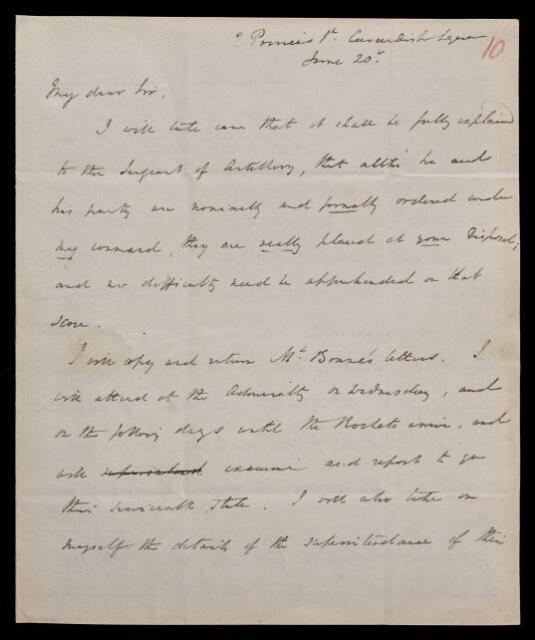 Princes St. Cavendish Square
10
June 20.
My dear Sir,
I will take care that it shall be fully explained
to the Sergeant of Artillery, that altho' he and
his party are nominally and formally ordered under
my command, they are really placed at your disposal;
and no difficulty need be apprehended on that
score.
I will copy and return Mr. Bonne's letters. I
will attend at the Admiralty on Wednesday, and
on the following days until the Rockets arrive, and
will examine and report to you
their serviceable state. I will also take on
myself the details of the superintendance of their